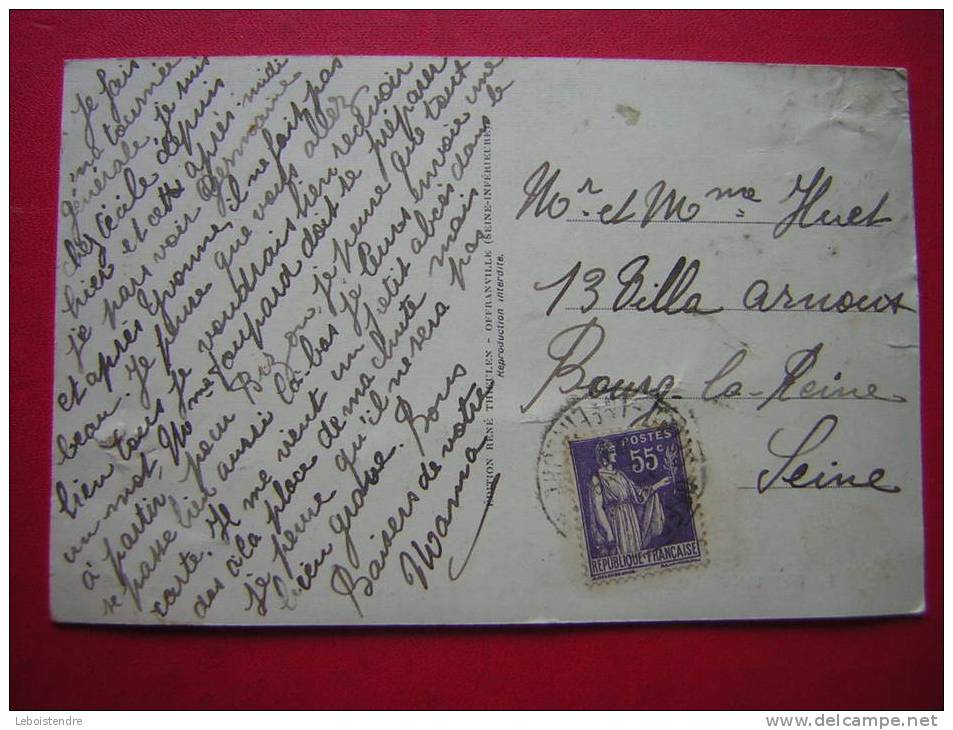 Je fais
ma tournée
générale, je suis
chez Cécile depuis
hier et cette après midi
je pars voir Germaine
et après Yvonne, il ne fait pas
beau. Je pense que vous allez
bien tous je voudrais bien recevoir
un mot, Mme Joupard doit se préparer
à partir pour je pense que tout
se passe bien aussi là-bas je leurs envoie une
carte. Il me vient un petit abcès dans le
dos à la place de ma chute mais
je pense qu'il ne sera pas
bien grave. Bons
Baisers de votre
Maman
EDITION RENÉ THEULEN - OFFRANVILLE (SEINE-INFÉRIEURE)
Reproduction interdite.
Mr. et Mme Huet
13 Villa Arnoux
Bourg-la-Reine
Seine
POSTES
55c
REPUBLIQUE FRANÇAISE
Leboistendre
www.delcampe.net